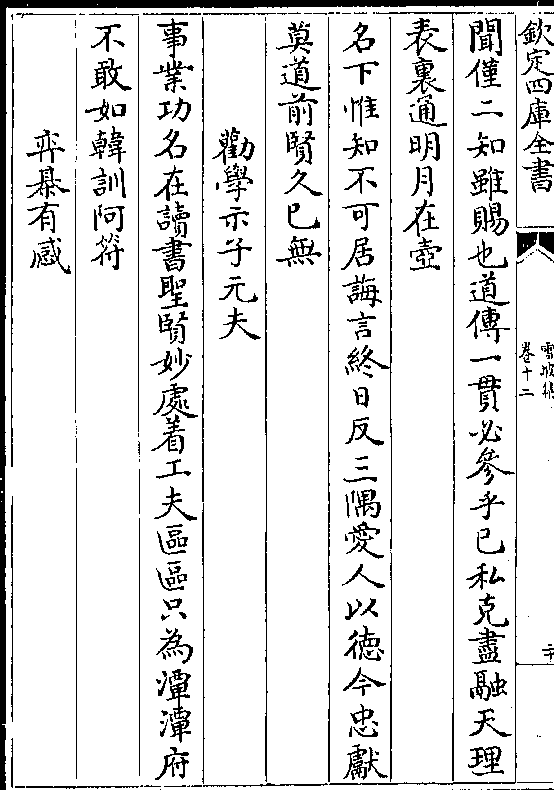 欽定四庫全書
雪坡集
卷十二
聞僅二知雖賜也道傳一貫必參乎已私克盡融天理
表裏通明月在壺
名下惟知不可居誨言終日反三隅愛人以德今忠獻
莫道前賢久已無
勸學示子元夫
事業功名在讀書聖賢妙處着工夫區區只為潭潭府
不敢如韓訓阿符
弈棊有感